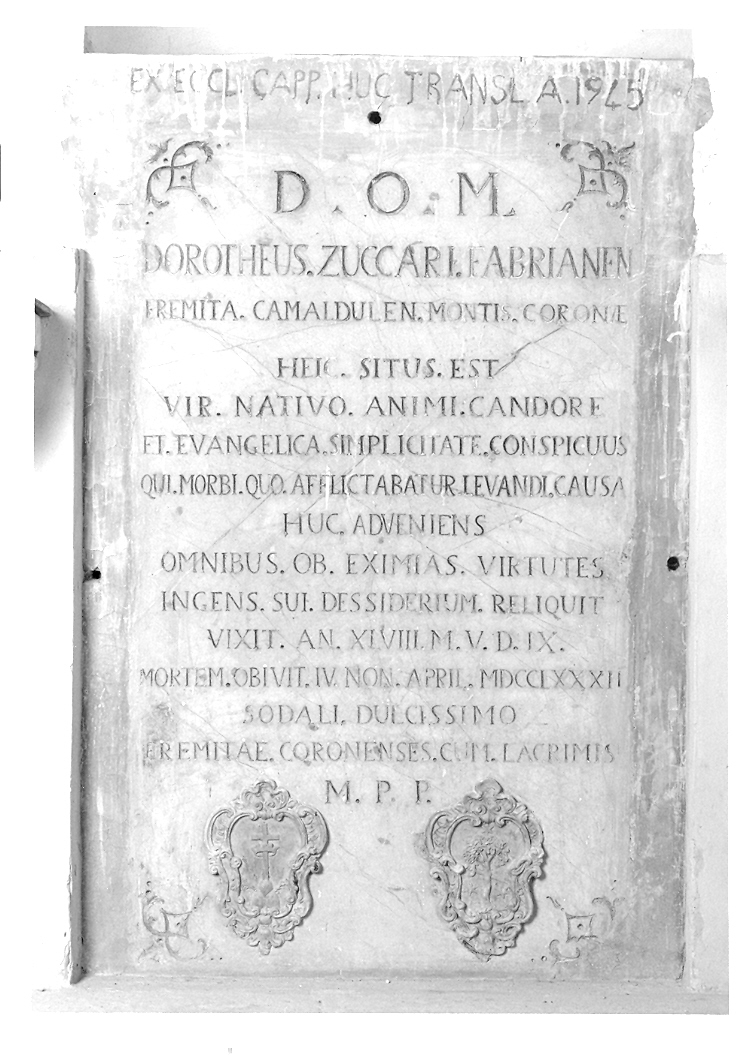 EX. ECCL. CAPP. HUC TRANSLA. 1945
D. O. M.
DOROTHEUS. ZUCCARI. FABRIANEN
EREMITA. CAMALDULEN. MONTIS. CORONÆ
HEIC. SITUS. EST
VIR. NATIVO. ANIMI. CANDORE
ET. EVANGELICA. SIMPLICITATE. CONSPICUUS
QUI. MORBI. QUO. AFFLICTABATUR. LEVANDI. CAUSA
HUC. ADVENIENS
OMNIBUS. OB. EXIMIAS. VIRTUTES
INGENS. SUI. DESSIDERIUM. RELIQUIT
VIXIT. AN. XLVIII. M. V. D. IX.
MORTEM. OBIVIT. IV. NON. APRIL. MDCCLXXXII
SODALI. DULCISSIMO
EREMITAE. CORONENSES. CUM. LACRIMIS
M. P. P.